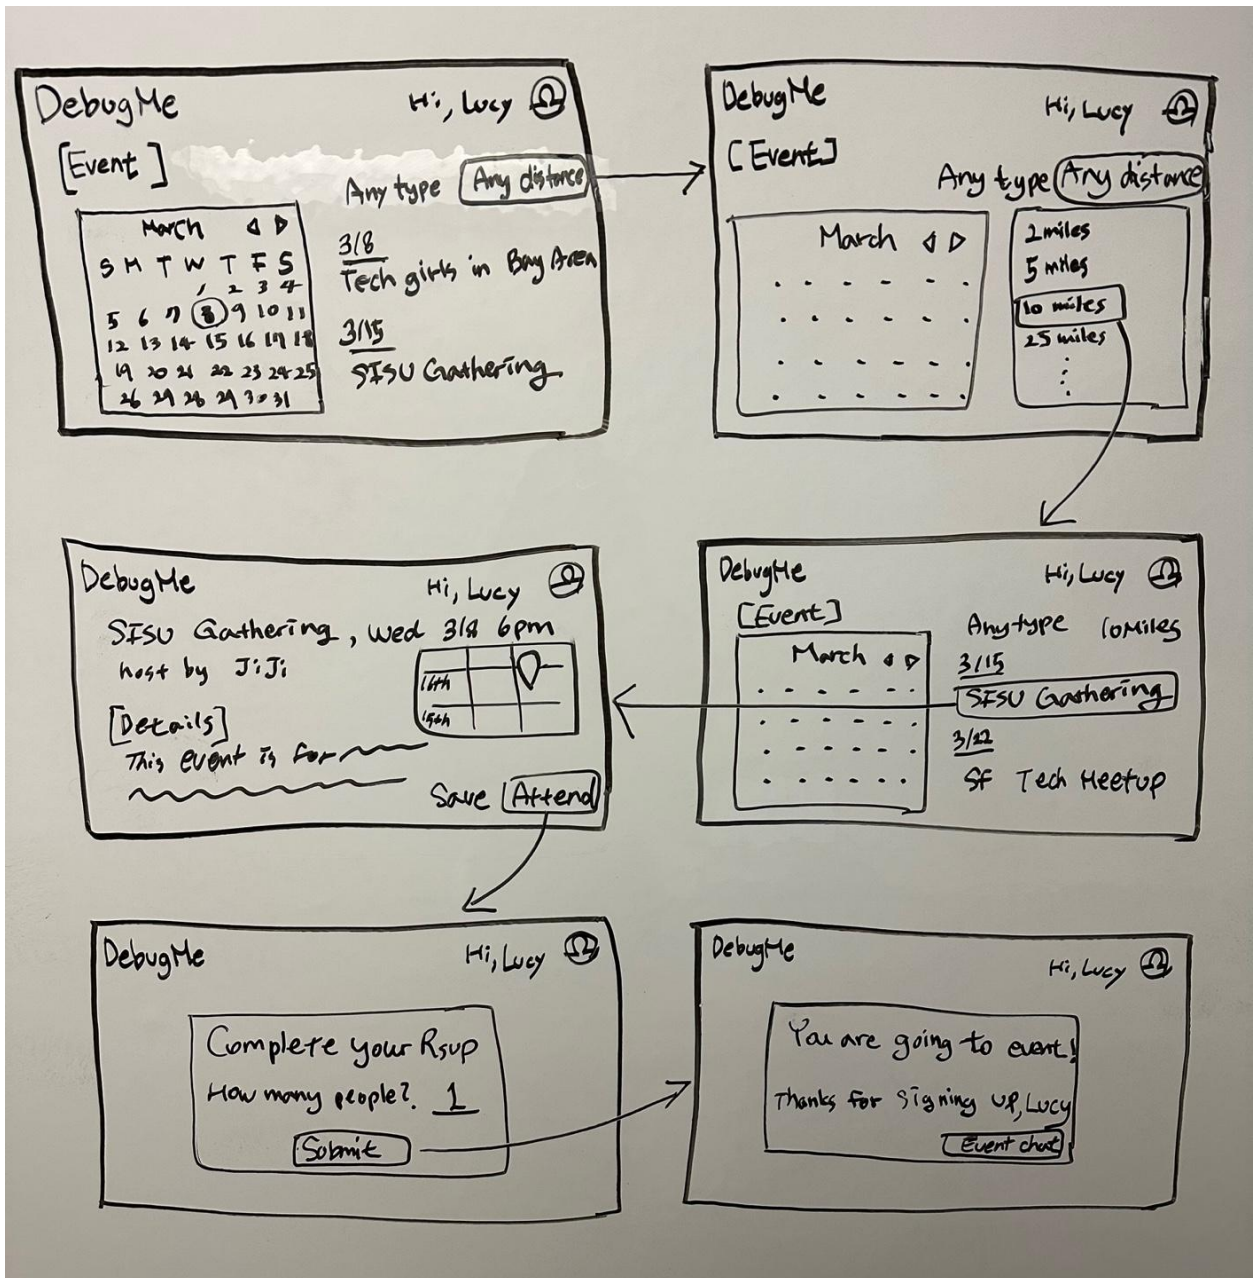 DebugMe
Hi, Lucy
[Event]
Any type Any distance
March
S M T W T F S
1 2 3 4
5 6 7 8 9 10 11
12 13 14 15 16 17 18
19 20 21 22 23 24 25
26 29 28 29 30 31
3/8
Tech girls in Bay Area
3/15
SISU Gathering
DebugMe
Hi, Lucy
[Event]
Any type Any distance
March
2 miles
5 miles
10 miles
25 miles
DebugMe
Hi, Lucy
SISU Gathering, Wed 3/8 6pm
host by JiJi
16th
15th
[Details]
This event is for
Save Attend
DebugMe
Hi, Lucy
[Event]
Any type 10Miles
March
3/15
SISU Gathering
3/22
SF Tech Meetup
DebugMe
Hi, Lucy
Complete your Rsvp
How many people? 1
Submit
DebugMe
Hi, Lucy
You are going to event!
Thanks for signing up, Lucy
Event chat